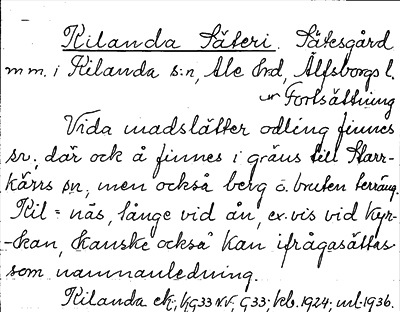 Kilanda Säteri. Sätesgård
m m. i Kilanda s:n, Ale Hrd, Älfsborgs l.
Fortsättning
Vida madslätter odling finnes
sn; där ock å finnes i gräns till Starr-
kärrs sn, men också berg o. bruten terräng.
Kil = näs, långe vid ån, ex.vis vid Kyr-
-kan, kanske också kan ifrågasättas
som namnanledning.
Kilanda ek; kg 33 N.V, G 33; kb. 1924; utl. 1936.